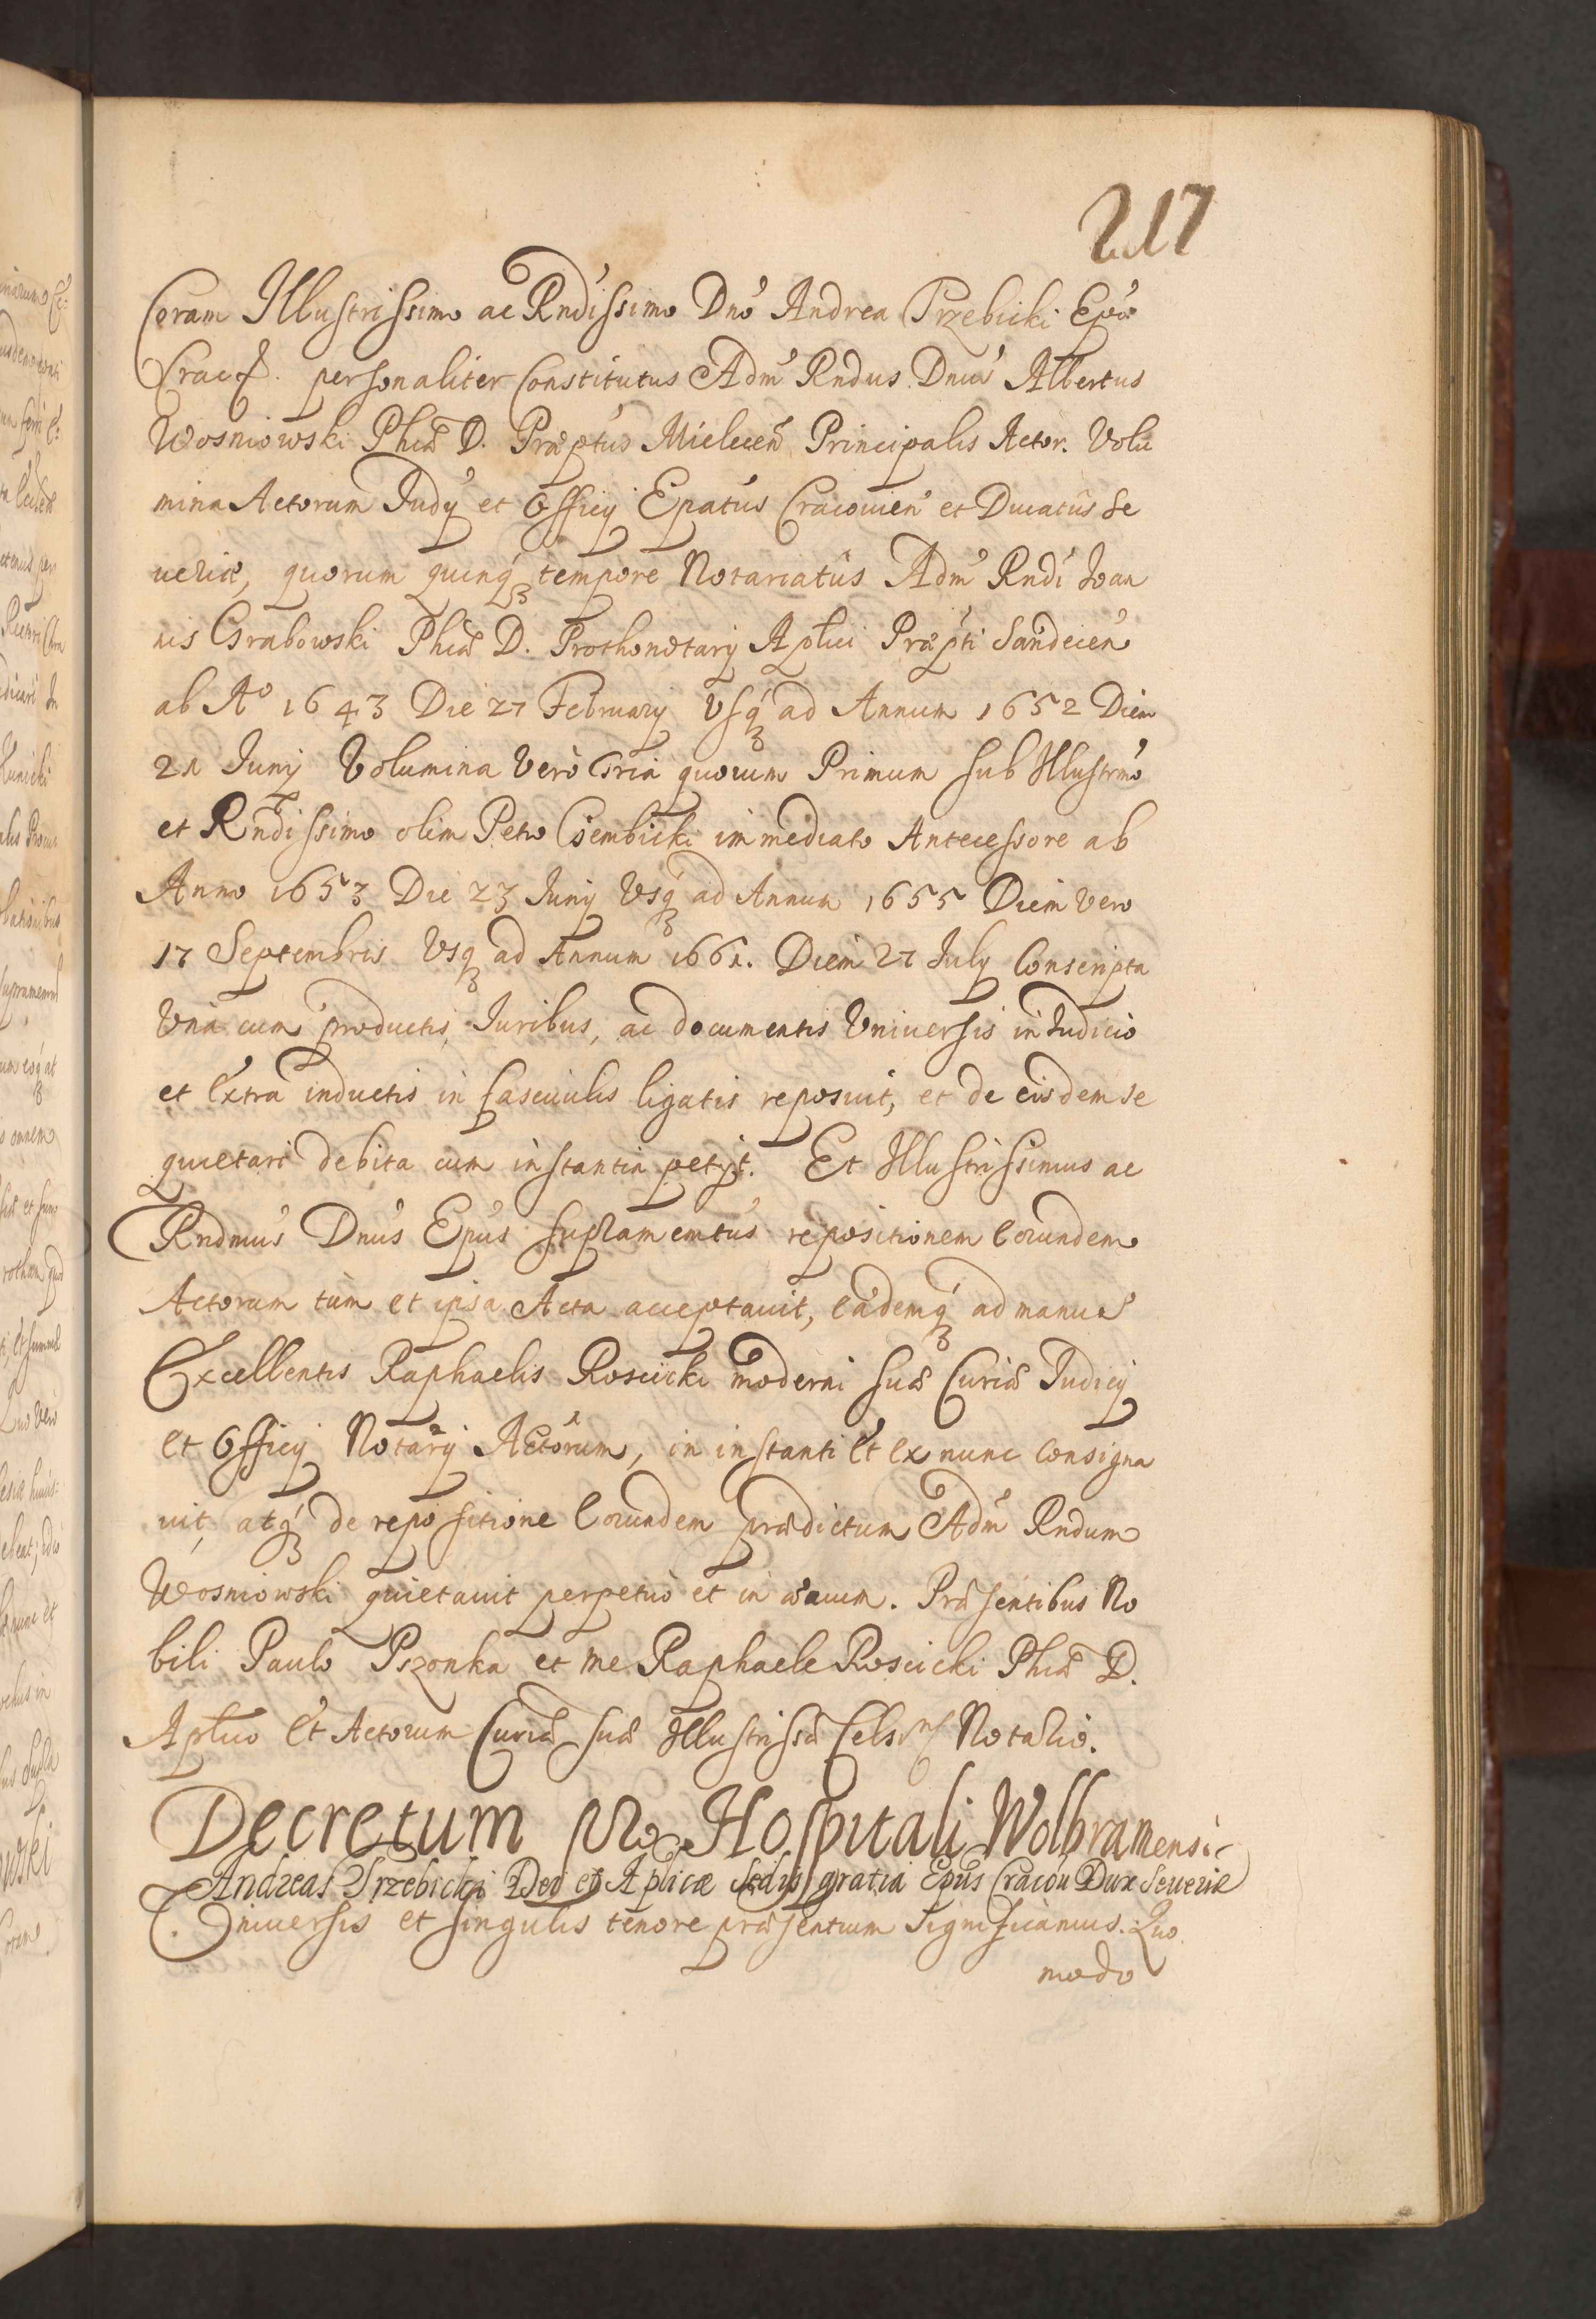 217
Coram Illustrissimo ac Rndissimo Dno Andrea Trzebicki Epo
personaliter Constitutus Adm Rndus Dnus Albertus
Wosniowski Phiæ D. Præptus Mielecen Principalis Actor. Volu
mina Actorum Judy et Officy Epatus Cracouien et Ducatus Se
ueriæ, quorum quinq tempore Notariatus Adm Rndi Joan
nis Grabowski Phiæ D. Prothonotarij Aplici Præpti Sandecen
ab Aº 1643 Die 27 February Vsq ad Annum 1652 Diem
21 Junij Volumina Vero tria quorum Primum sub Illustrmo
et Rndissimo olim Petro Gembicki immediato Antecessore ab
Anno 1653 Die 23 Junij Vsq ad Annum 1655 Diem Vero
17 Septembris Vsq ad Annum 1661. Diem 27 July Conscripta
Vna cum productis, Juribus, ac documentis Vniuersis in Judicio
et Extra inductis in fasciculis ligatis reposuit, et de eisdem se
quietari debita cum instantia petijt. Et Illustrissimus ac
Rndmus Dnus Epus supramemtus repositionem Eorundem
Actorum tum et ipsa Acta acceptauit, Eademq ad manus
Excellentis Raphaelis Roscicki moderni suæ Curiæ Judicij
et Officij Notarij Actorum, in instanti Et Ex nunc Consigna
uit, atq de repositione Eorundem prædictum Adm Rndum
Wosniowski quietauit perpetuo et in æuum. Præsentibus No
bili Paulo Pszonka et me Raphaele Roscicki Phiæ D.
Aplico Et Actorum Curiæ suæ Illustrissæ Notario.
Decretum pro Hospitali Wolbramensi
Andreas Trzebicki Dei et Aplicæ Sedis gratia Epus Cracou Dux Seueriæ
Vniuersis et singulis tenore præsentium Significamus. Quo
modo